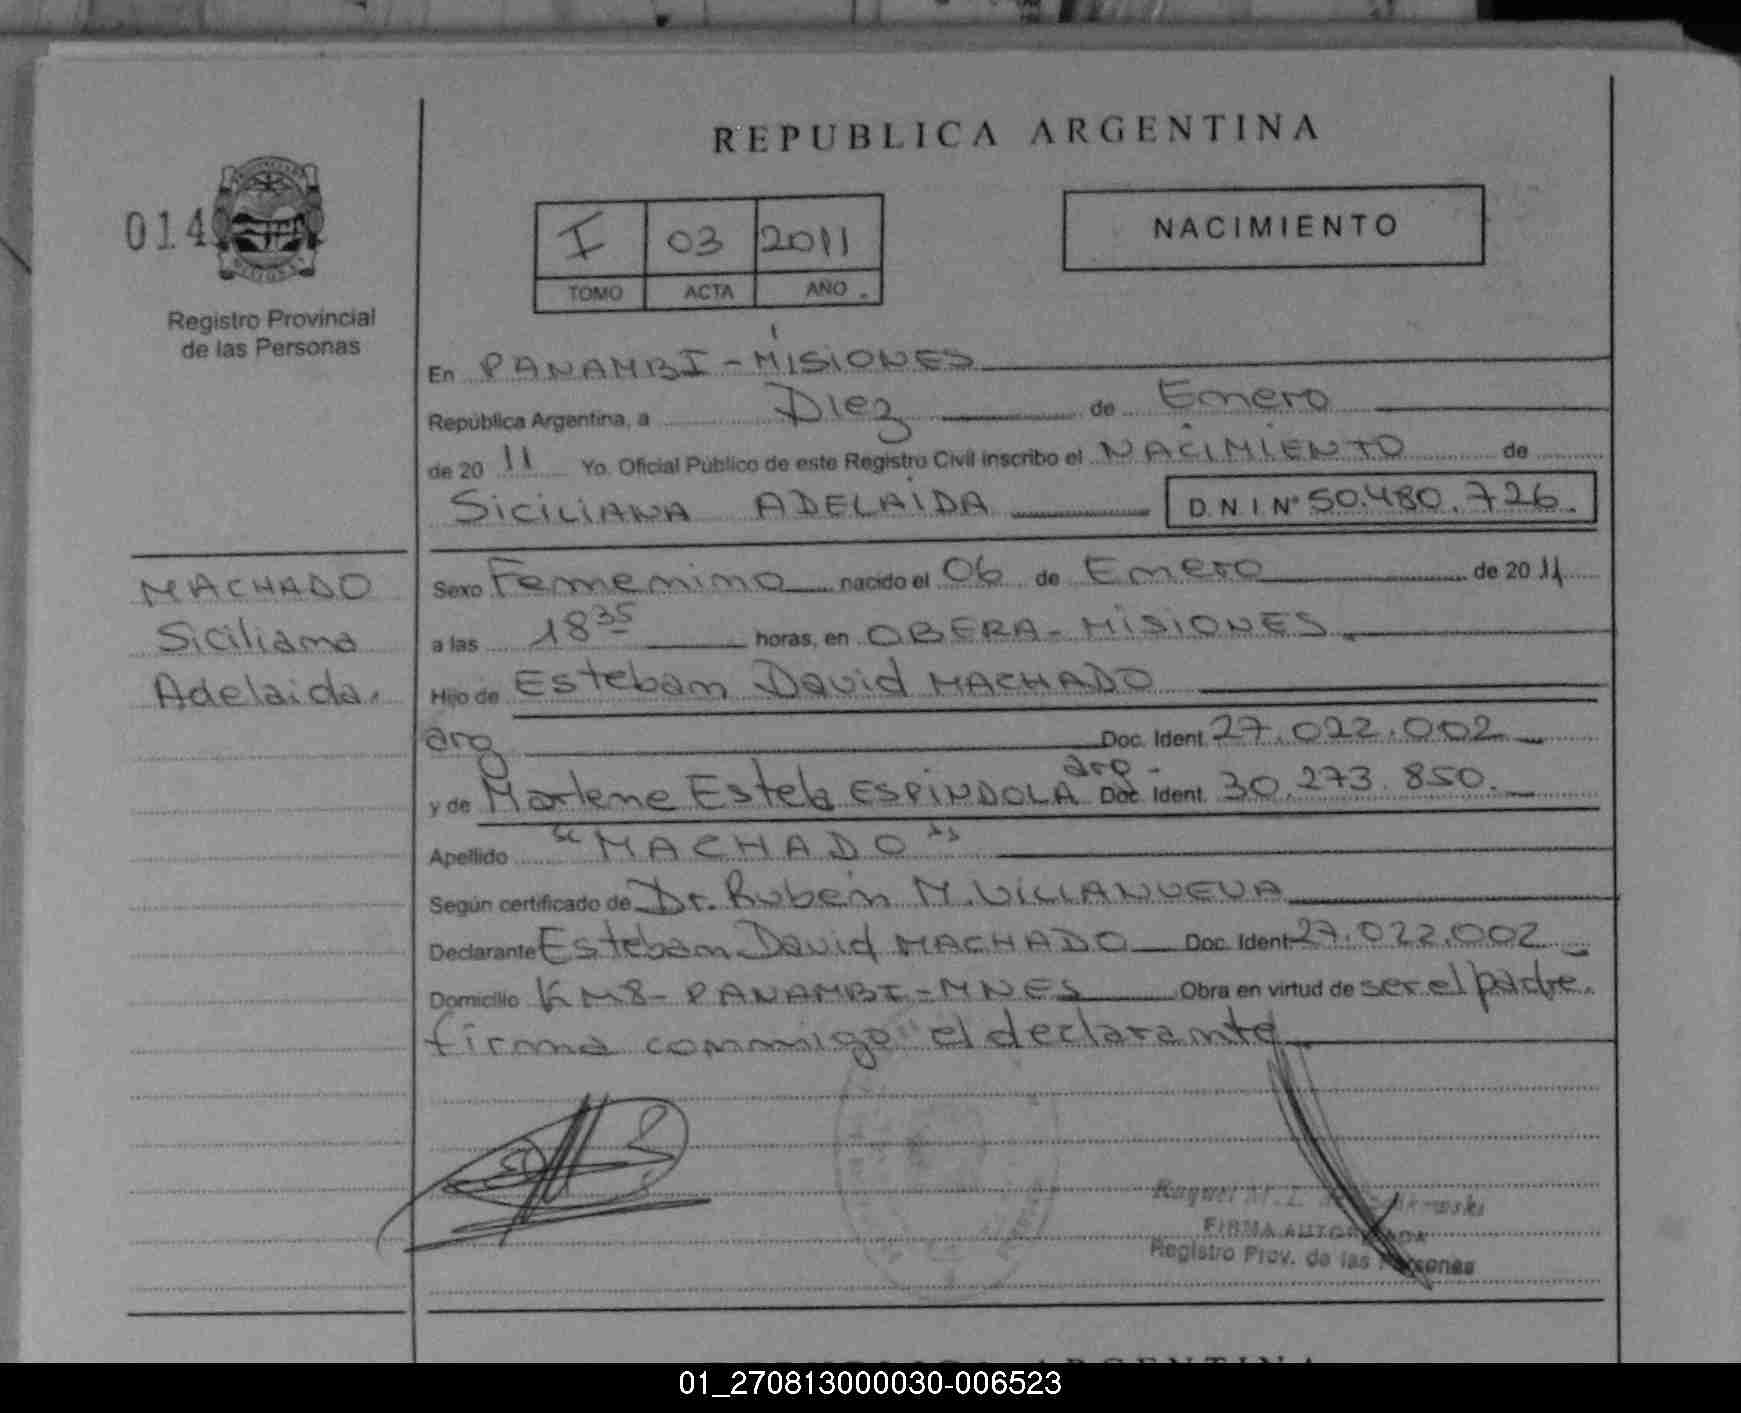 REPUBLICA ARGENTINA
014
I 03 2011
TOMO ACTA AÑO
NACIMIENTO
Registro Provincial
de las Personas
En PANAMBI - MISIONES
República Argentina, a Diez de Enero
de 20 11 Yo. Oficial Público de este Registro Civil inscribo el NACIMIENTO de
SICILIANA ADELAIDA D.N.I. Nº 50.480.726.
MACHADO
Siciliana
Adelaida.
Sexo Femenino nacido el 06 de Enero de 20 11
a las 18 35 horas, en OBERA - MISIONES.
Hijo de Esteban David MACHADO
arg Doc. Ident. 27.022.002
y de Marlene Estela ESPINDOLA arg. Doc. Ident. 30.273.850.
Apellido "MACHADO"
Según certificado de Dr. Rubén M. VILLANUEVA
Declarante Esteban David MACHADO Doc. Ident 27.022.002
Domicilio KM8 - PANAMBI - MNES Obra en virtud de ser el padre.
firma conmigo el declarante
Raquel M. L.
FIRMA AUTORIZADA
Registro Prov. de las Personas
01_270813000030-006523